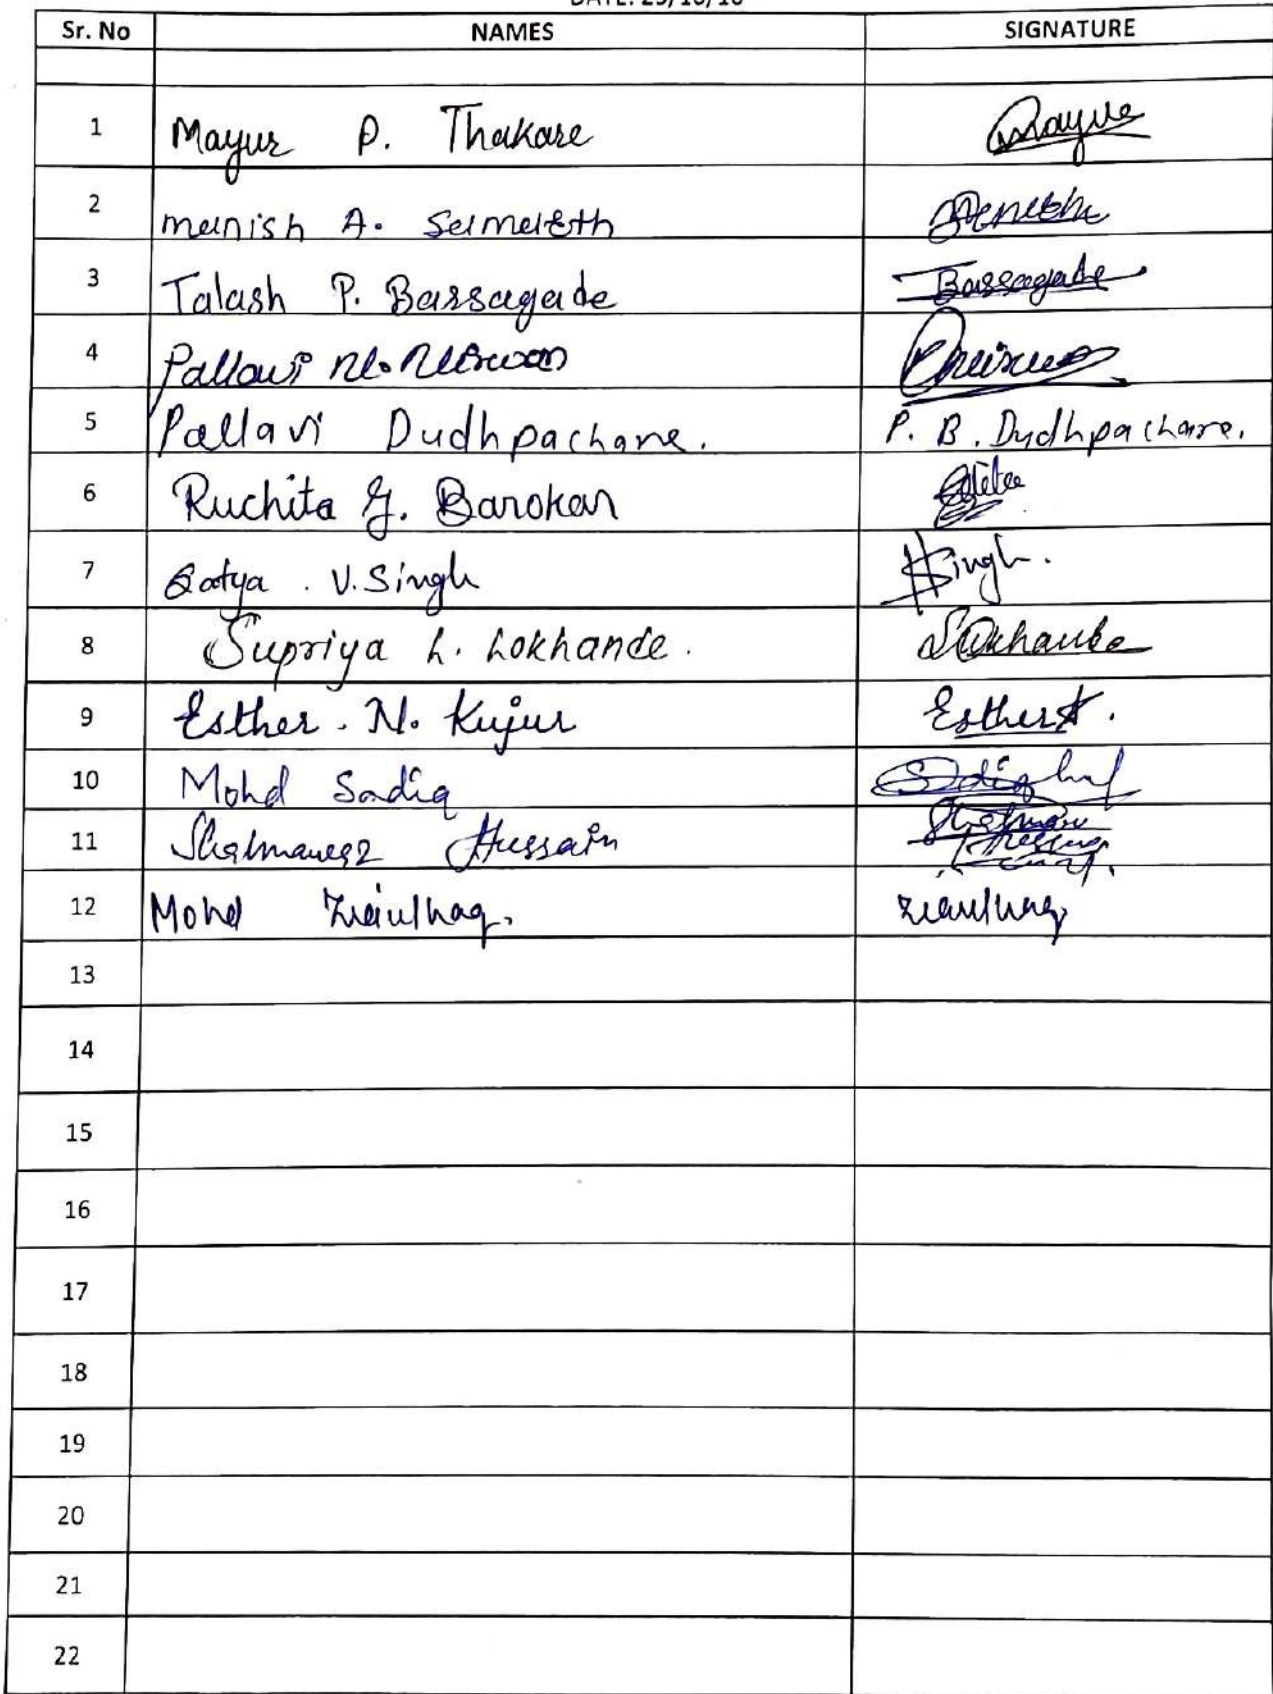 Sr. No NAMES SIGNATURE
1 Mayur P. Thakare Mayur
2 manish A.
3 Talash P. Barsagade Barsagade
4 Pallavi
5 Pallavi Dudhpachare. P. B. Dudhpachare.
6 Ruchita G. Barokar
7 Satya . V. Singh Singh.
8 Supriya L. Lokhande. Lokhande
9 Esther . N. Kujur Esther
10 Mohd Sadiq
11 Hussain
12 Mohd Ziaulhaq. Ziaulhaq
13
14
15
16
17
18
19
20
21
22